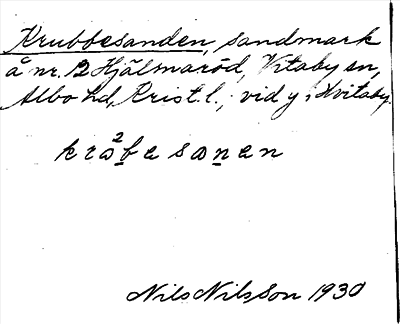 Krubbesanden, sandmark
å nr. 12 Hjälmaröd, Vitaby sn,
Albo hd, Krist. l.; vid y i Hvitaby.
kra²besanen
Nils Nilsson 1930